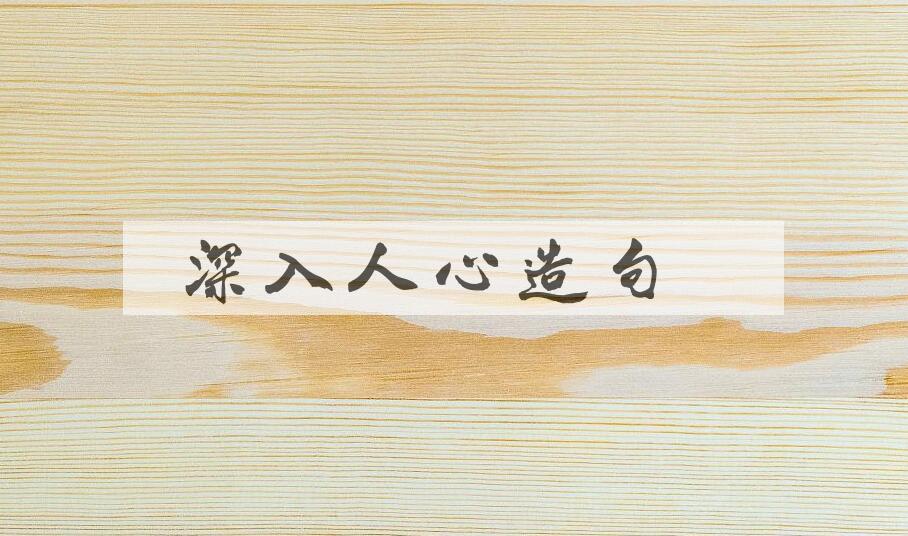 深入人心造句